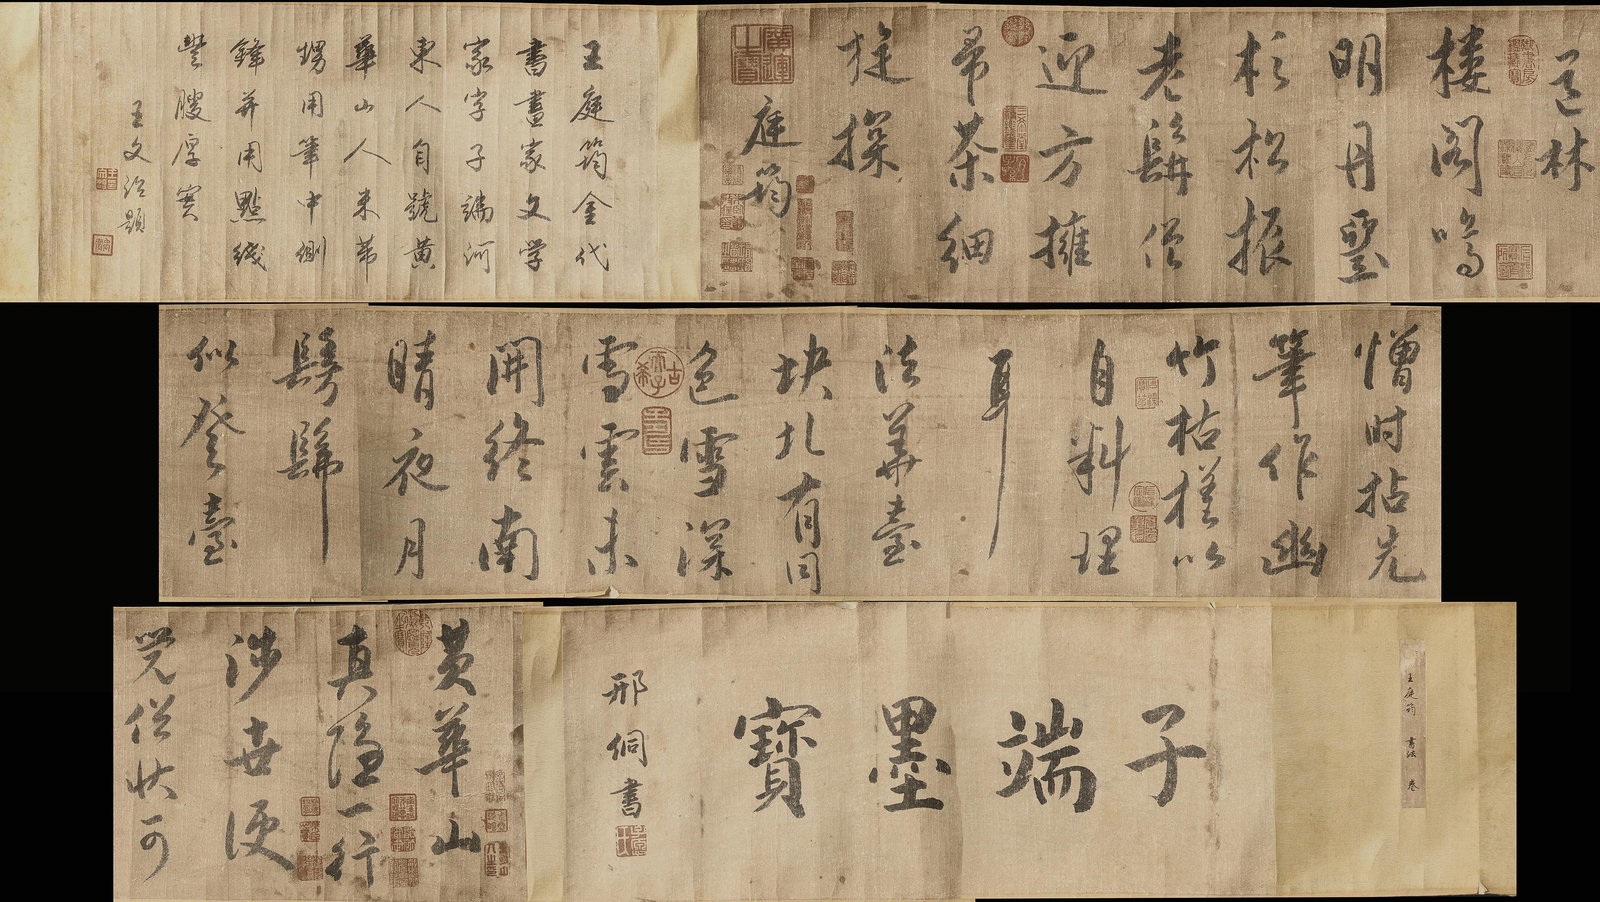 王庭筠 書法 卷
子端墨寶
邢侗書
黃華山
真隐一行
涉世便
覺俗状可
憎时拈秃
筆作幽
竹枯槎以
自料理
耳
法華臺
块圠有同
色雪深
雪雲未
開終南
晴夜月
髣髴
似登臺
林
楼阁鳴
明丹壑
杉松振
老髯僧
迎方擁
帚茶細
旋探
庭筠
王庭筠金代
書畫家文学
家字子端河
東人自號黃
華山人米芾
甥用筆中側
鋒并用點綫
豐腴厚實
王文治題